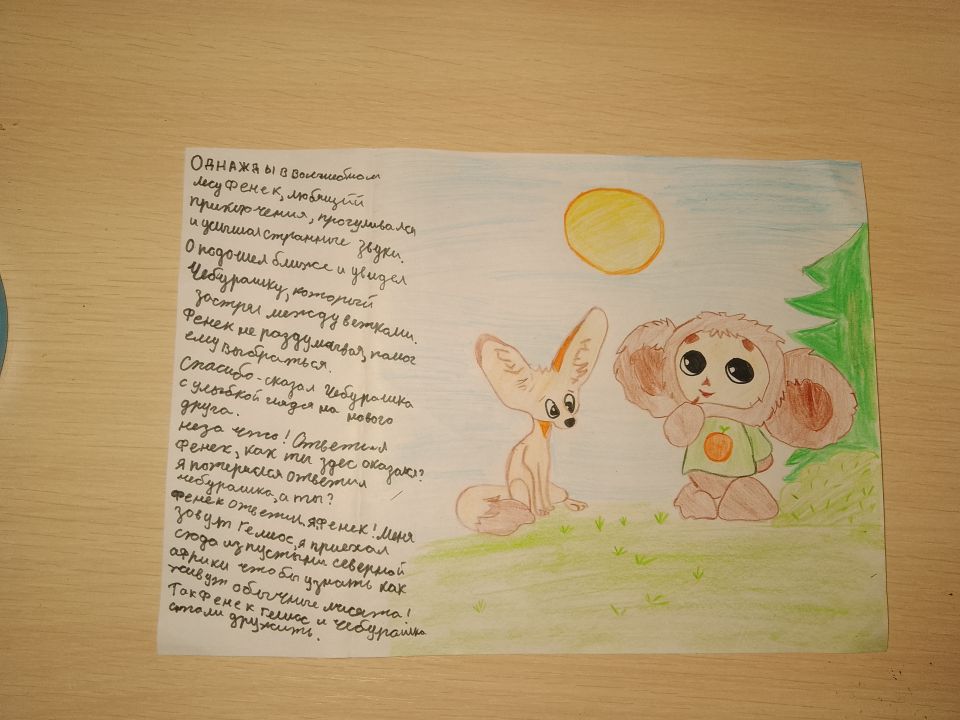 Однажды в волшебном
лесу Фенек, любящий
приключения, прогуливался
и услышал странные звуки.
О подошел ближе и увидел
Чебурашку, который
застрял между ветками.
Фенек не раздумывая, помог
ему выбраться.
Спасибо-сказал Чебурашка
с улыбкой глядя на нового
друга.
неза что! Ответил
Фенек, как ты здес оказался?
Я потерялся ответил
чебурашка, а ты?
Фенек ответил, я Фенек! Меня
зовут Гелиос, я приехал
сюда из пустыни северной
африки что бы узнать как
живут обычные лисята!
Так Фенек Гелиос и чебурашка
стали дружить.